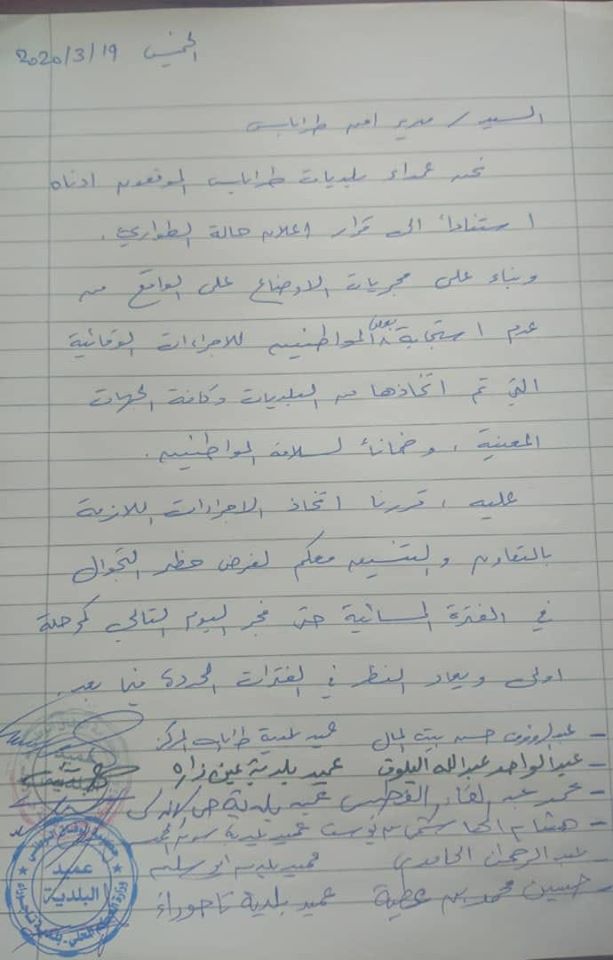 الخميس 2020/3/19
السيد / مدير امن طرابلس
نحن عمداء بلديات طرابلس الموقعون ادناه
استناداً الى قرار اعلان حالة الطوارئ .
وبناء على مجريات الاوضاع على الواقع من
عدم استجابة بعض المواطنين للاجراءات الوقائية
التي تم اتخاذها من البلديات وكافة الجهات
المعنية ، وضماناً لسلامة المواطنين .
عليه ، قررنا اتخاذ الاجراءات اللازمة
بالتعاون والتنسيق معكم لفرض حظر التجوال
في الفترة المسائية حتى فجر اليوم التالي كمرحلة
اولى ويعاد النظر في الفترات المحددة فيما بعد .
- عبدالرؤوف حسن بيت المال عميد بلدية طرابلس المركز
- عبدالواحد عبدالله البلوق عميد بلدية عين زاره
- محمد عبد عميد بلدية حي الاندلس
- هشام بن يوسف عميد بلدية سوق الجمعة
- عبد الرحمن الحامدي عميد بلدية ابوسليم
- حسين محمد بن عطية عميد بلدية تاجوراء
عميد
البلدية